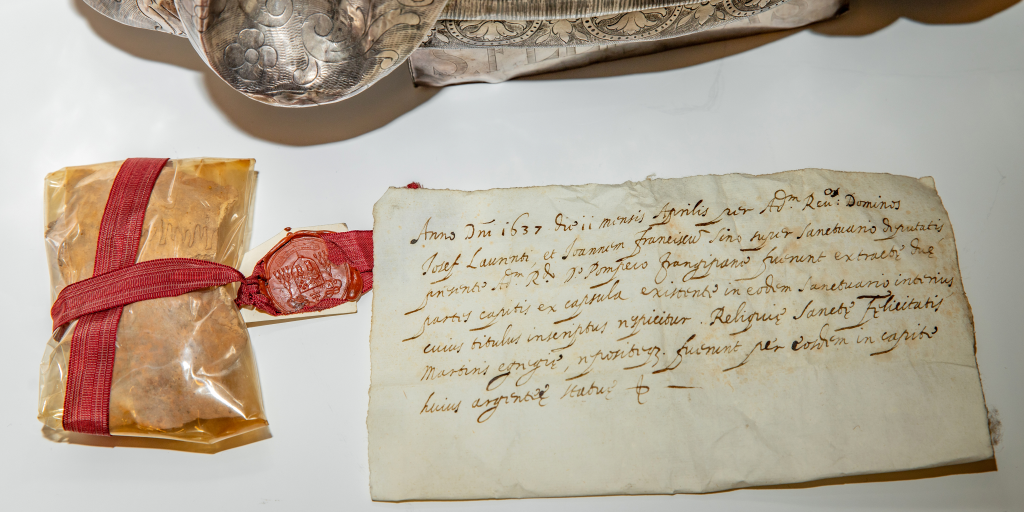 Anno Dni 1637 die 11 mensis Aprilis per Adm Reu: Dominos
Josef Laurenti, et Joannem Franciscu Sino super Sanctuario deputatis
presente Adm Rdo Do Pompeio Frangipano fuerunt extracte due
partes capitis ex capsula existente in eodem Sanctuario interius
cuius titulus inscriptus Reliquie Sancte Felicitatis
Martiris fuerunt per eosdem in capite
huius argentee statue